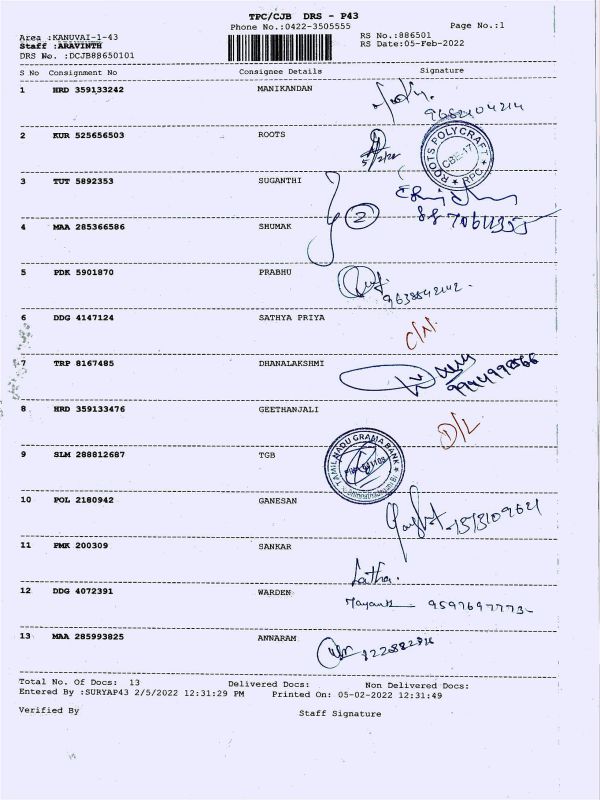 TPC/CJB DRS - P43
Phone No.:0422-3505555 Page No.:1
Area :KANUVAI-1-43 RS No.:886501
Staff :ARAVINTH RS Date:05-Feb-2022
DRS No. :DCJB88650101
S No Consignment No Consignee Details Signature
1 HRD 359133242 MANIKANDAN
2 KUR 525656503 ROOTS
ROOTS POLYCRAFT
CBE-17
RPC
3 TUT 5892353 SUGANTHI
2
4 MAA 285366586 SHUMAK
5 PDK 5901870 PRABHU
6 DDG 4147124 SATHYA PRIYA
C/N.
7 TRP 8167485 DHANALAKSHMI
8 HRD 359133476 GEETHANJALI
D/L
9 SLM 288812687 TGB
TAMIL NADU GRAMA BANK
10 POL 2180942 GANESAN
11 PMK 200309 SANKAR
Latha.
12 DDG 4072391 WARDEN
Mayank 9597697773
13 MAA 285993825 ANNARAM
Total No. Of Docs: 13 Delivered Docs: Non Delivered Docs:
Entered By :SURYAP43 2/5/2022 12:31:29 PM Printed On: 05-02-2022 12:31:49
Verified By Staff Signature